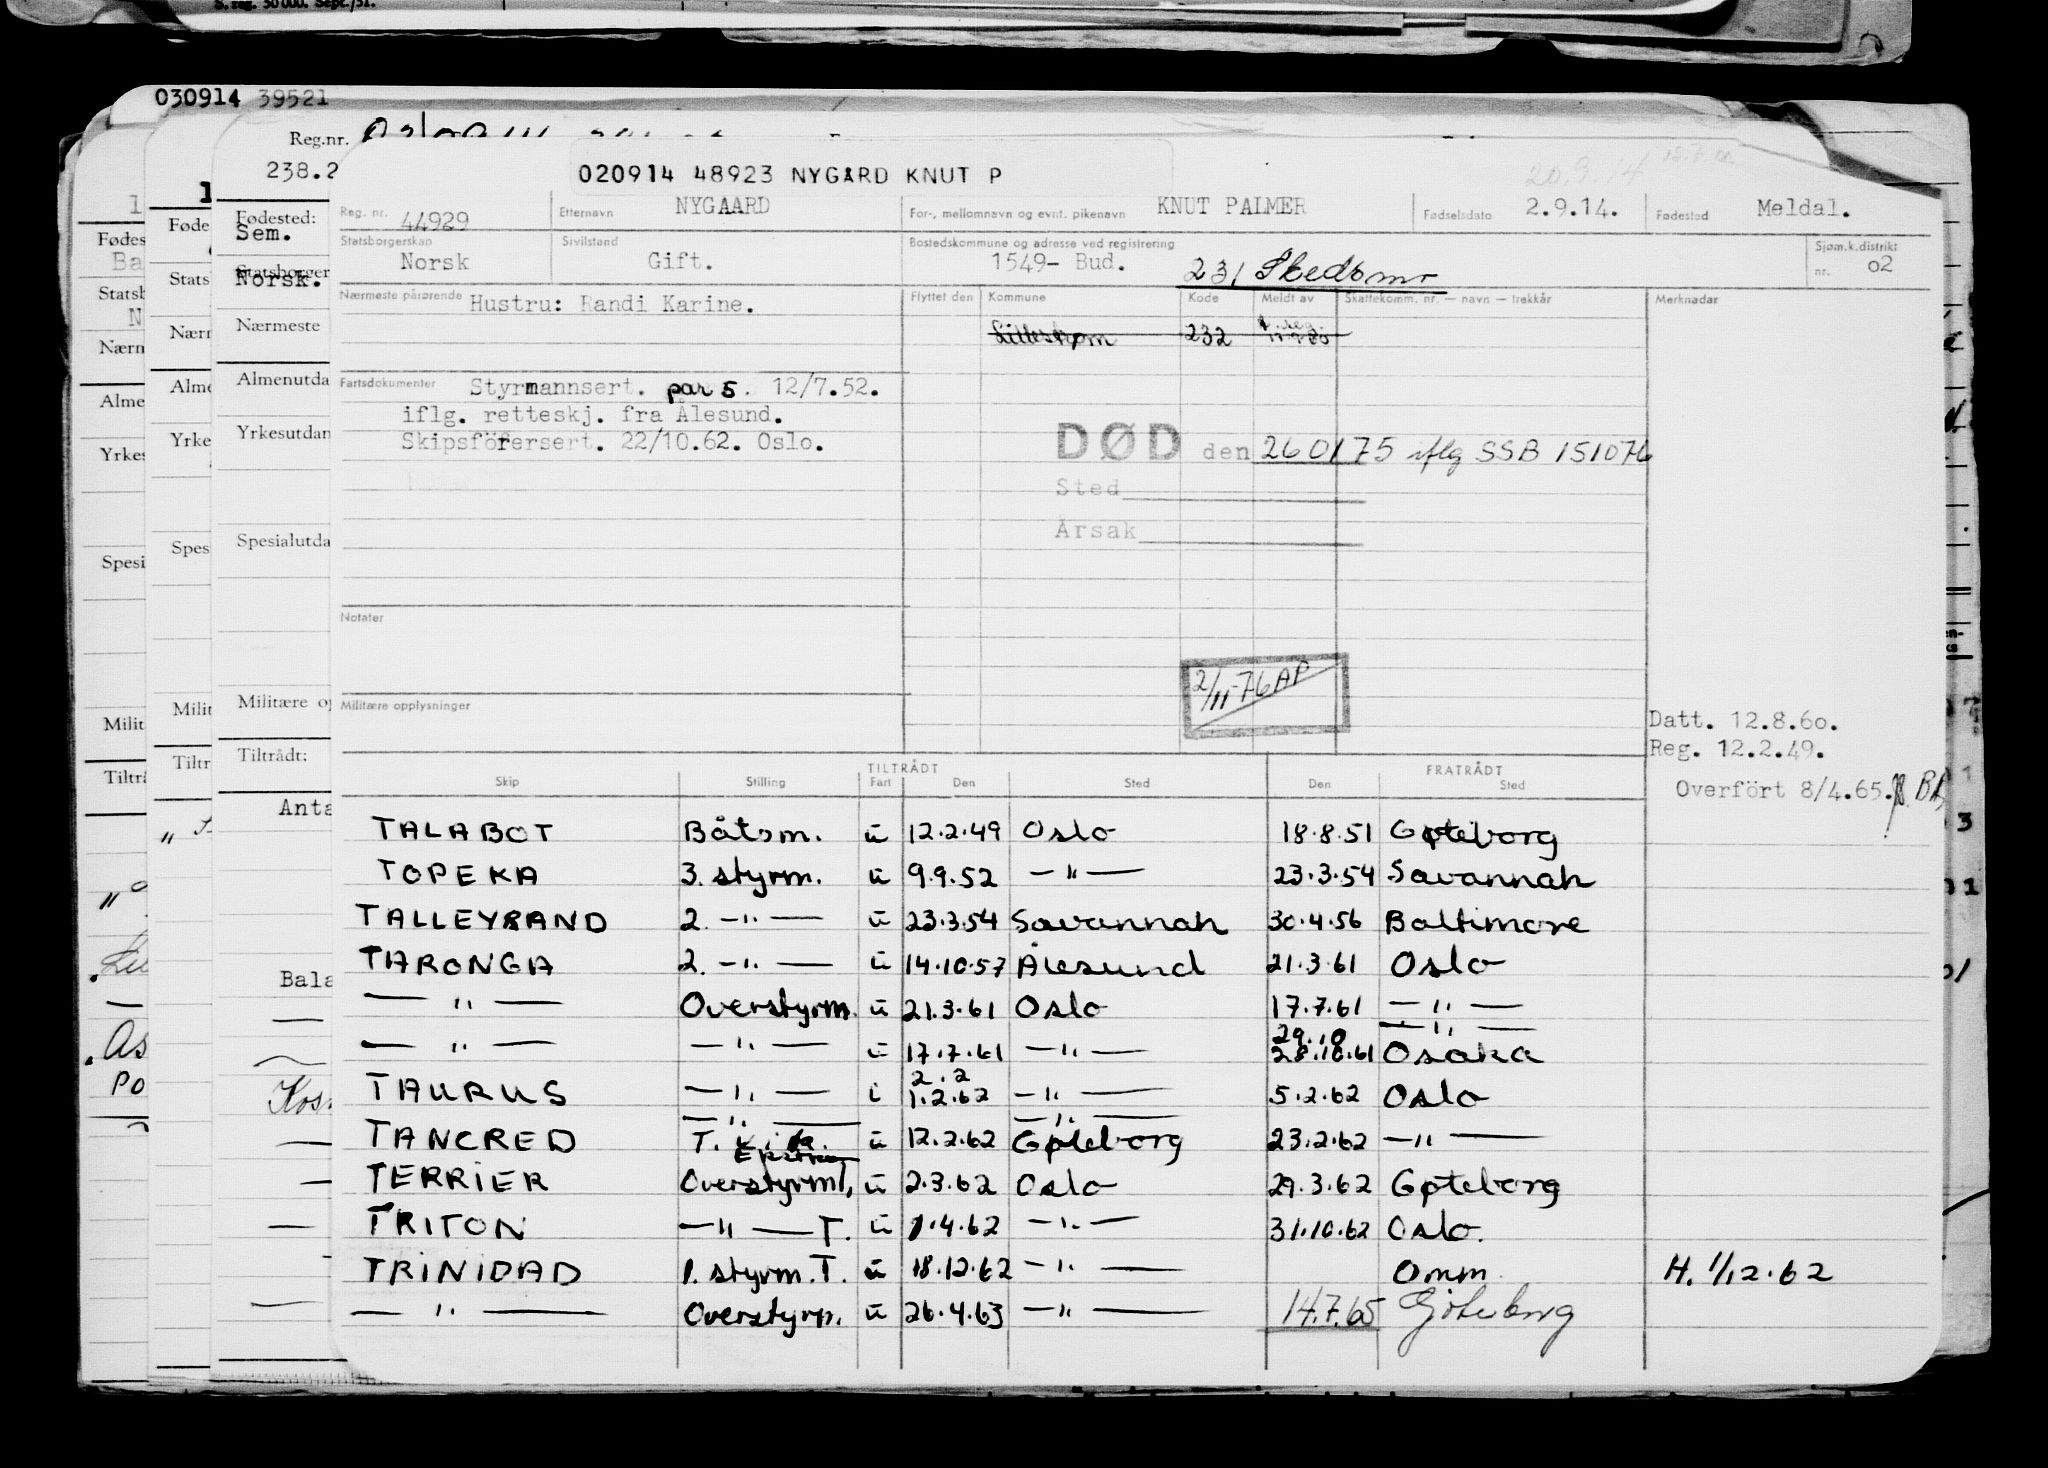 S. reg. 50 000. Sept./51.
030914 39521
Reg.nr.
238.2
020914 48923 NYGÅRD KNUT P
20.9.14
Reg. nr. 44929 Etternavn NYGAARD For-, mellomnavn og evnt. pikenavn KNUT PALMER Fødselsdato 2.9.14. Fødested Meldal.
Statsborgerskap Norsk Sivilstand Gift. Bostedskommune og adresse ved registrering 1549- Bud. 231 Skedsmo Sjøm.k.distrikt nr. 02
Nærmeste pårørende Hustru: Randi Karine. Flyttet den Kommune Kode Meldt av Skattekomm. nr. — navn — trekkår Merknader
Lillestrøm 232
Fartsdokumenter Styrmannsert. par 5. 12/7.52.
iflg. retteskj. fra Ålesund.
Skipsförersert. 22/10.62. Oslo.
DØD den 260175 iflg SSB 151076
Sted
Årsak
Notater
2/11-76 AP
Militære opplysninger
Datt. 12.8.60.
Reg. 12.2.49.
Overfört 8/4.65.
TILTRÅDT FRATRÅDT
Skip Stilling Fart Den Sted Den Sted
TALABOT Båtsm. u 12.2.49 Oslo 18.8.51 Gøteborg
TOPEKA 3. styrm. u 9.9.52 —"— 23.3.54 Savannah
TALLEYRAND 2. —"— u 23.3.54 Savannah 30.4.56 Baltimore
TARONGA 2. —"— u 14.10.57 Ålesund 21.3.61 Oslo
—"— Overstyrm. u 21.3.61 Oslo 17.7.61 —"—
29.10 —"—
—"— —"— u 17.7.61 —"— 28.10.61 Osaka
2.2
TAURUS —"— i 1.2.62 —"— 5.2.62 Oslo
—"— —"—
TANCRED T. Ekstra u 12.2.62 Gøteborg 23.2.62 —"—
TERRIER Overstyrm T. u 2.3.62 Oslo 29.3.62 Gøteborg
TRITON —"— T. u 1.4.62 —"— 31.10.62 Oslo.
TRINIDAD 1. styrm. T. u 18.12.62 —"— Omm. H. 1/12.62
—"— Overstyrm. u 26.4.63 —"— 14.7.65 Göteborg
Fødested:
Sem.
Statsborger
Norsk.
Nærmeste
Almenutda
Yrkesutdan
Spesialutda
Militære op
Tiltrådt:
Anta
Bala